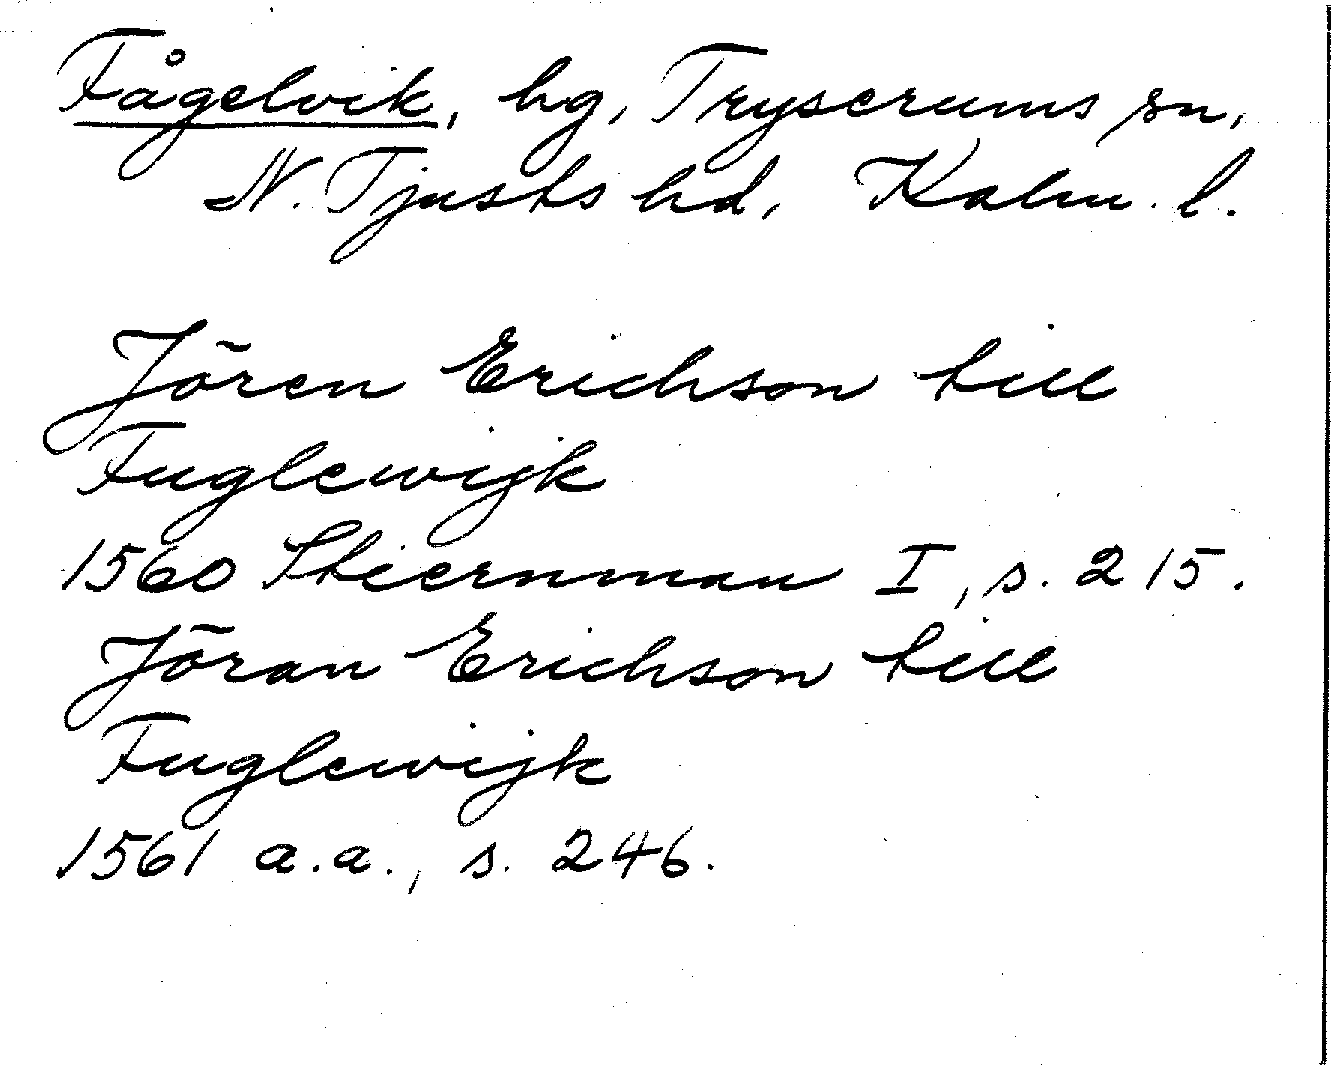 Fågelvik, hg, Tryserums sn,
N. Tjusts hd, Kalm. l.
Jören Erichson till
Fuglewijk
1560 Stiernman I, s. 215.
Jöran Erichson till
Fuglewijk
1561 a.a., s. 246.